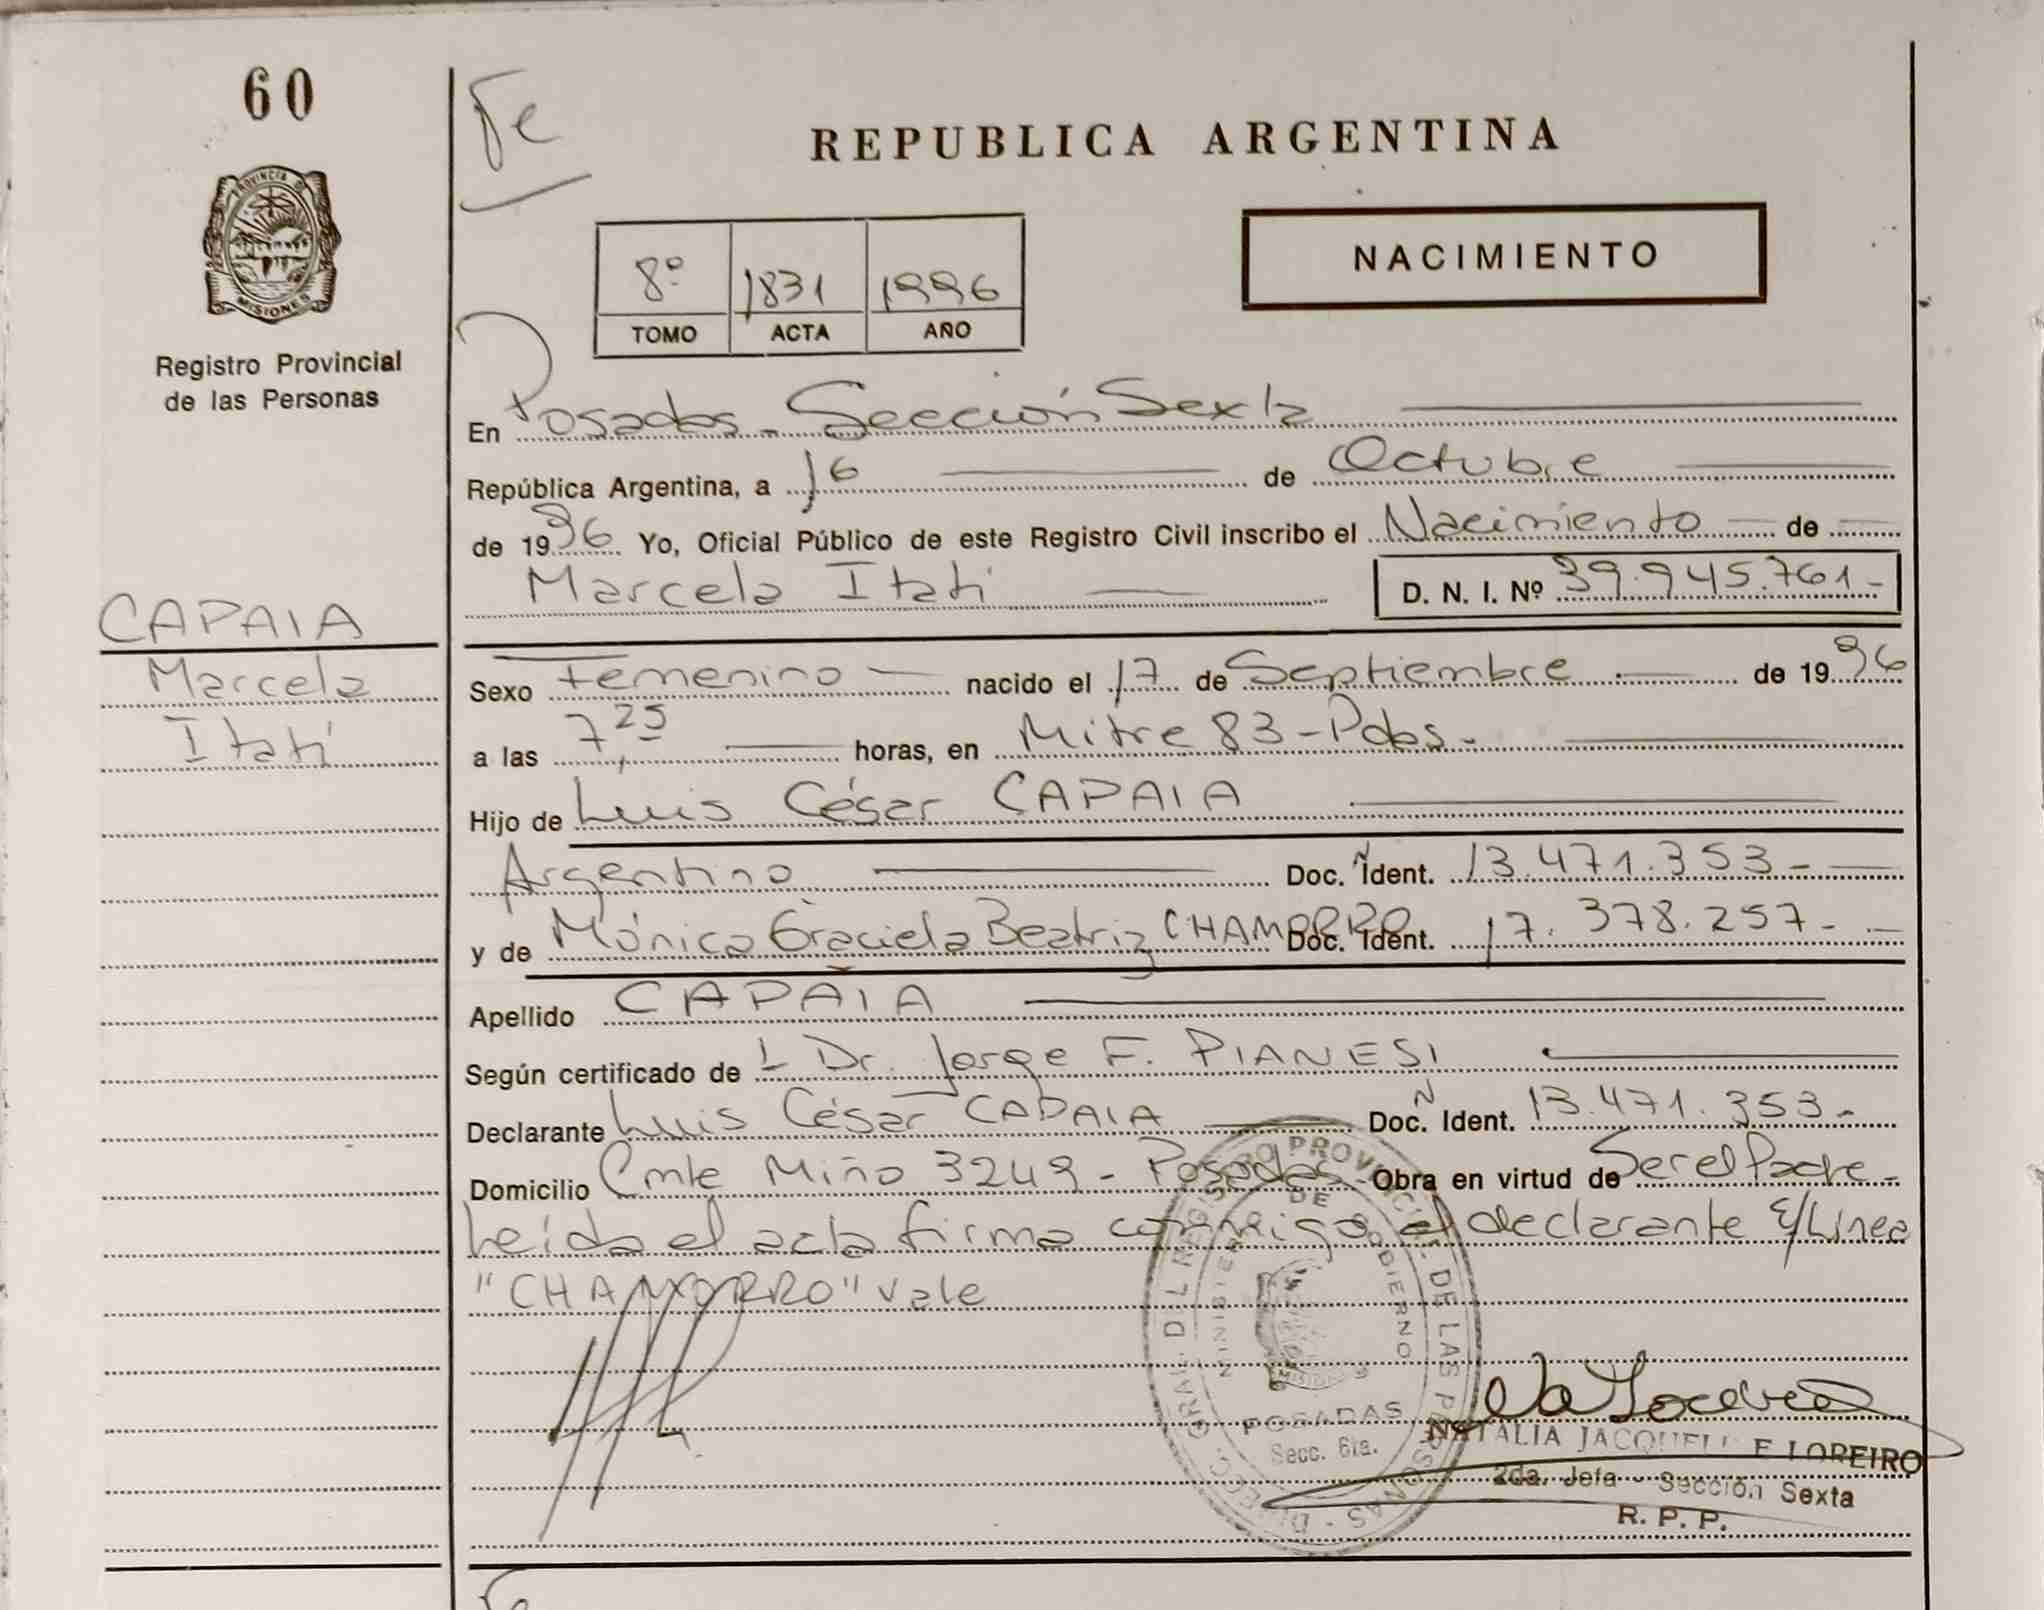 60
Fe
REPUBLICA ARGENTINA
PROVINCIA DE
MISIONES
Registro Provincial
de las Personas
8º 1831 1996
TOMO ACTA AÑO
NACIMIENTO
En Posadas - Sección Sexta
República Argentina, a 16 de Octubre
de 1996 Yo, Oficial Público de este Registro Civil inscribo el Nacimiento de
Marcela Itatí D. N. I. Nº 39.945.761-
CAPAIA
Marcela
Itatí
Sexo Femenino nacido el 17 de Septiembre de 1996
a las 7,25 horas, en Mitre 83 - Pdas.
Hijo de Luis César CAPAIA
Argentino Doc. Ident. 13.471.353-
y de Mónica Graciela Beatriz CHAMORRO Doc. Ident. 17.378.257-
Apellido CAPAIA
Según certificado de L Dr. Jorge F. PIANESI
Declarante Luis César CAPAIA Doc. Ident. 13.471.353-
Domicilio Cmte Miño 3249 - Posadas Obra en virtud de Ser el Padre-
Leída el acta firma conmigo el declarante E/Línea
"CHAMORRO" Vale
DIRECC. GRAL. DEL REGISTRO PROVINCIAL DE LAS PERSONAS
MINISTERIO DE GOBIERNO
MISIONES
POSADAS
Secc. 6ta.
NATALIA JACQUELINE LOREIRO
2da. Jefa - Sección Sexta
R. P. P.